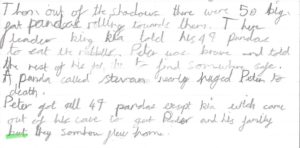 Then out of the shadows there were 50 big
fat pandas rolling towards them. Their
leader king kia told his 49 pandas
to eat the rabbits. Peter was brave and told
the rest of his to find somewhere safe.
A panda called stevan nearly huged Peter to
death.
Peter got all 49 pandas exept kia wich came
out of his cave to get Peter and his family
but they somhow flew home.